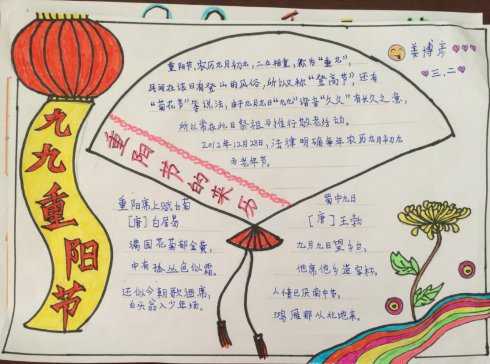 九九重阳节
重阳节的来历
重阳节,农历九月初九,二九相重,称为"重九",
民间在该日有登山的风俗,所以又称"登高节",还有
"菊花节"等说法,由于九月九日"九九"谐音"久久"有长久之意,
所以常在此日祭祖与推行敬老活动。
2012年12月28日,法律明确每年农历九月初九
为老年节。
姜博亭
三.二
重阳席上赋白菊
[唐]白居易
满园花菊郁金黄,
中有孤丛色似霜。
还似今朝歌酒席,
白头翁入少年场。
蜀中九日
[唐]王勃
九月九日望乡台,
他席他乡送客杯。
人情已厌南中苦,
鸿雁那从北地来。